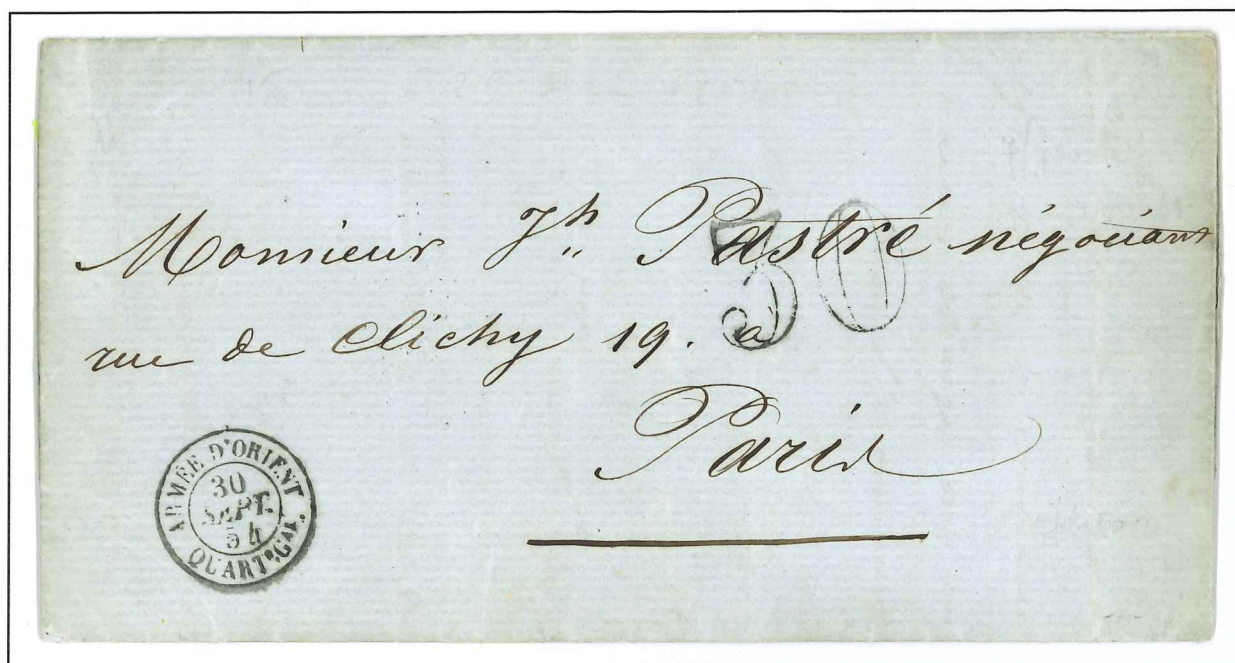 Monsieur Jh Pastré négociant
rue de Clichy 19. à
Paris
30
ARMÉE D'ORIENT
30
SEPT.
54
QUART. GAL.